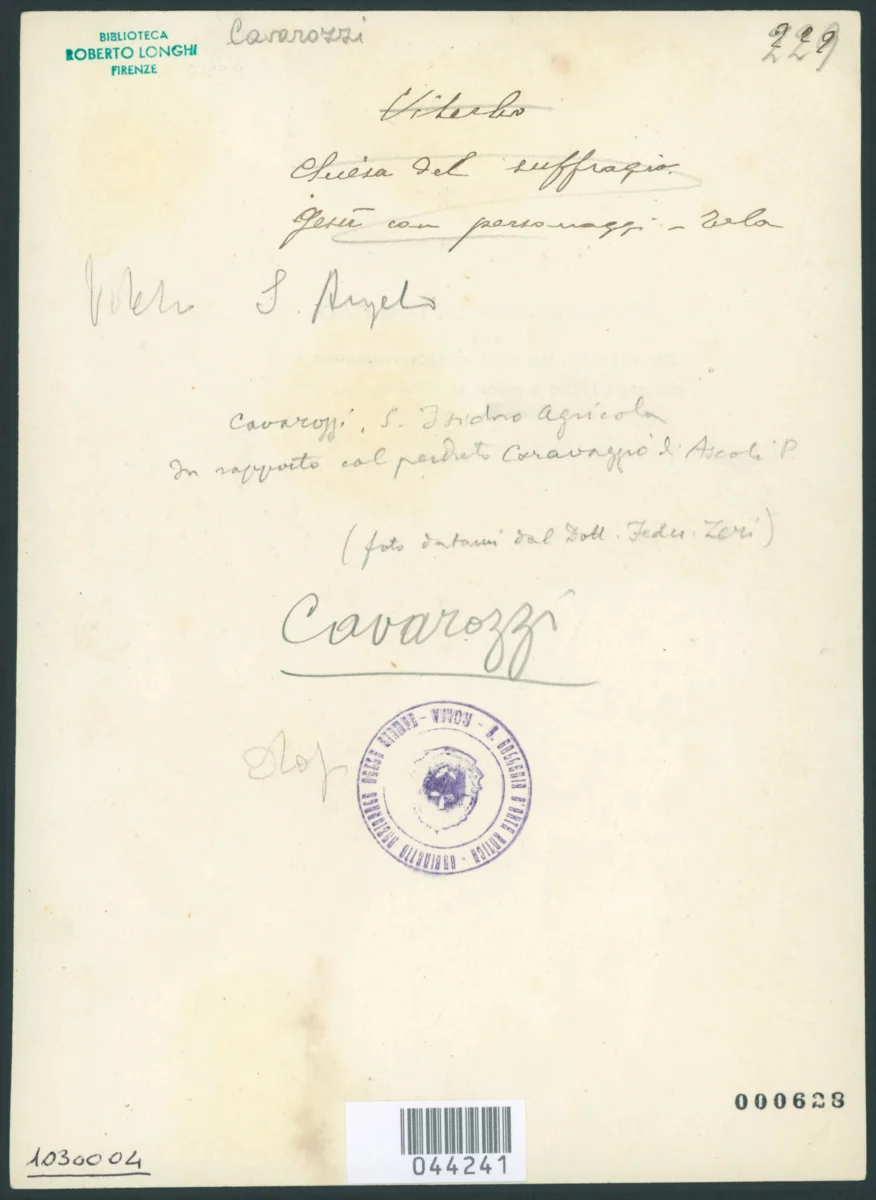 BIBLIOTECA
ROBERTO LONGHI
FIRENZE
Cavarozzi
229
Viterbo
Chiesa del suffragio.
Gesù con personaggi - Tela
Viterbo S. Angelo
Cavarozzi, S. Isidoro Agricola
In rapporto col perduto Caravaggio di Ascoli P.
(foto datami dal Dott. Feder. Zeri)
Cavarozzi
R. GALLERIA D'ARTE ANTICA - GABINETTO NAZIONALE DELLE STAMPE - ROMA
000628
1030004
044241